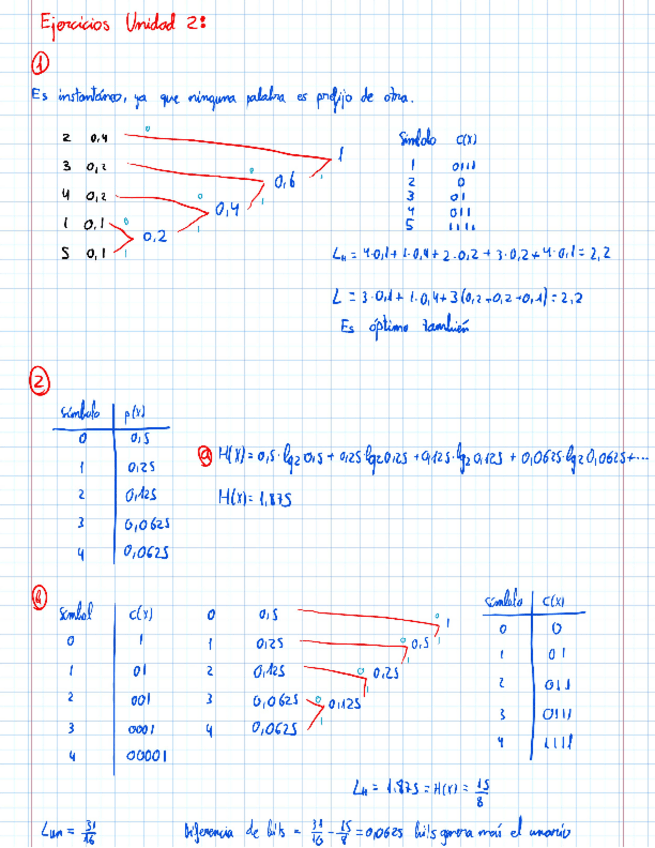 Ejercicios Unidad 2:
1
Es instantáneo, ya que ninguna palabra es prefijo de otra.
2 0,4
3 0,2
4 0,2
1 0,1
5 0,1
0 1
0 1
0 1
0 1
0,2
0,4
0,6
1
Símbolo C(X)
1 0111
2 0
3 01
4 011
5 1111
LH = 4·0,1 + 1·0,4 + 2·0,2 + 3·0,2 + 4·0,1 = 2,2
L = 3·0,1 + 1·0,4 + 3(0,2+0,2+0,1) = 2,2
Es óptimo también
2
símbolo p(x)
0 0,5
1 0,25
2 0,125
3 0,0625
4 0,0625
a H(X) = 0,5·lg2 0,5 + 0,25·lg2 0,25 + 0,125·lg2 0,125 + 0,0625·lg2 0,0625 + ...
H(x) = 1,875
b
Símbol C(x)
0 1
1 01
2 001
3 0001
4 00001
0 0,5
1 0,25
2 0,125
3 0,0625
4 0,0625
0 1
0 1
0 1
0 1
0,125
0,25
0,5
1
símbolo C(X)
0 0
1 01
2 011
3 0111
4 1111
LH = 1,875 = H(X) = 15/8
LUN = 31/16
Diferencia de bits = 31/16 - 15/8 = 0,0625 bits genera más el unario